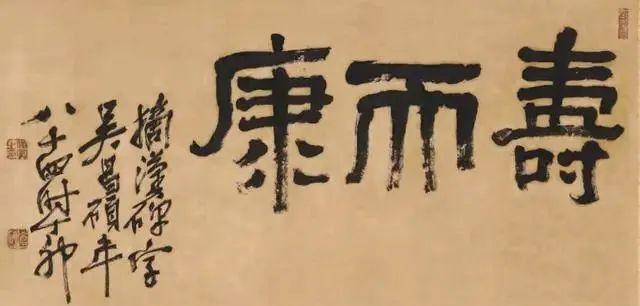 壽而康
摘漢碑字
吳昌碩年
八十四時丁卯